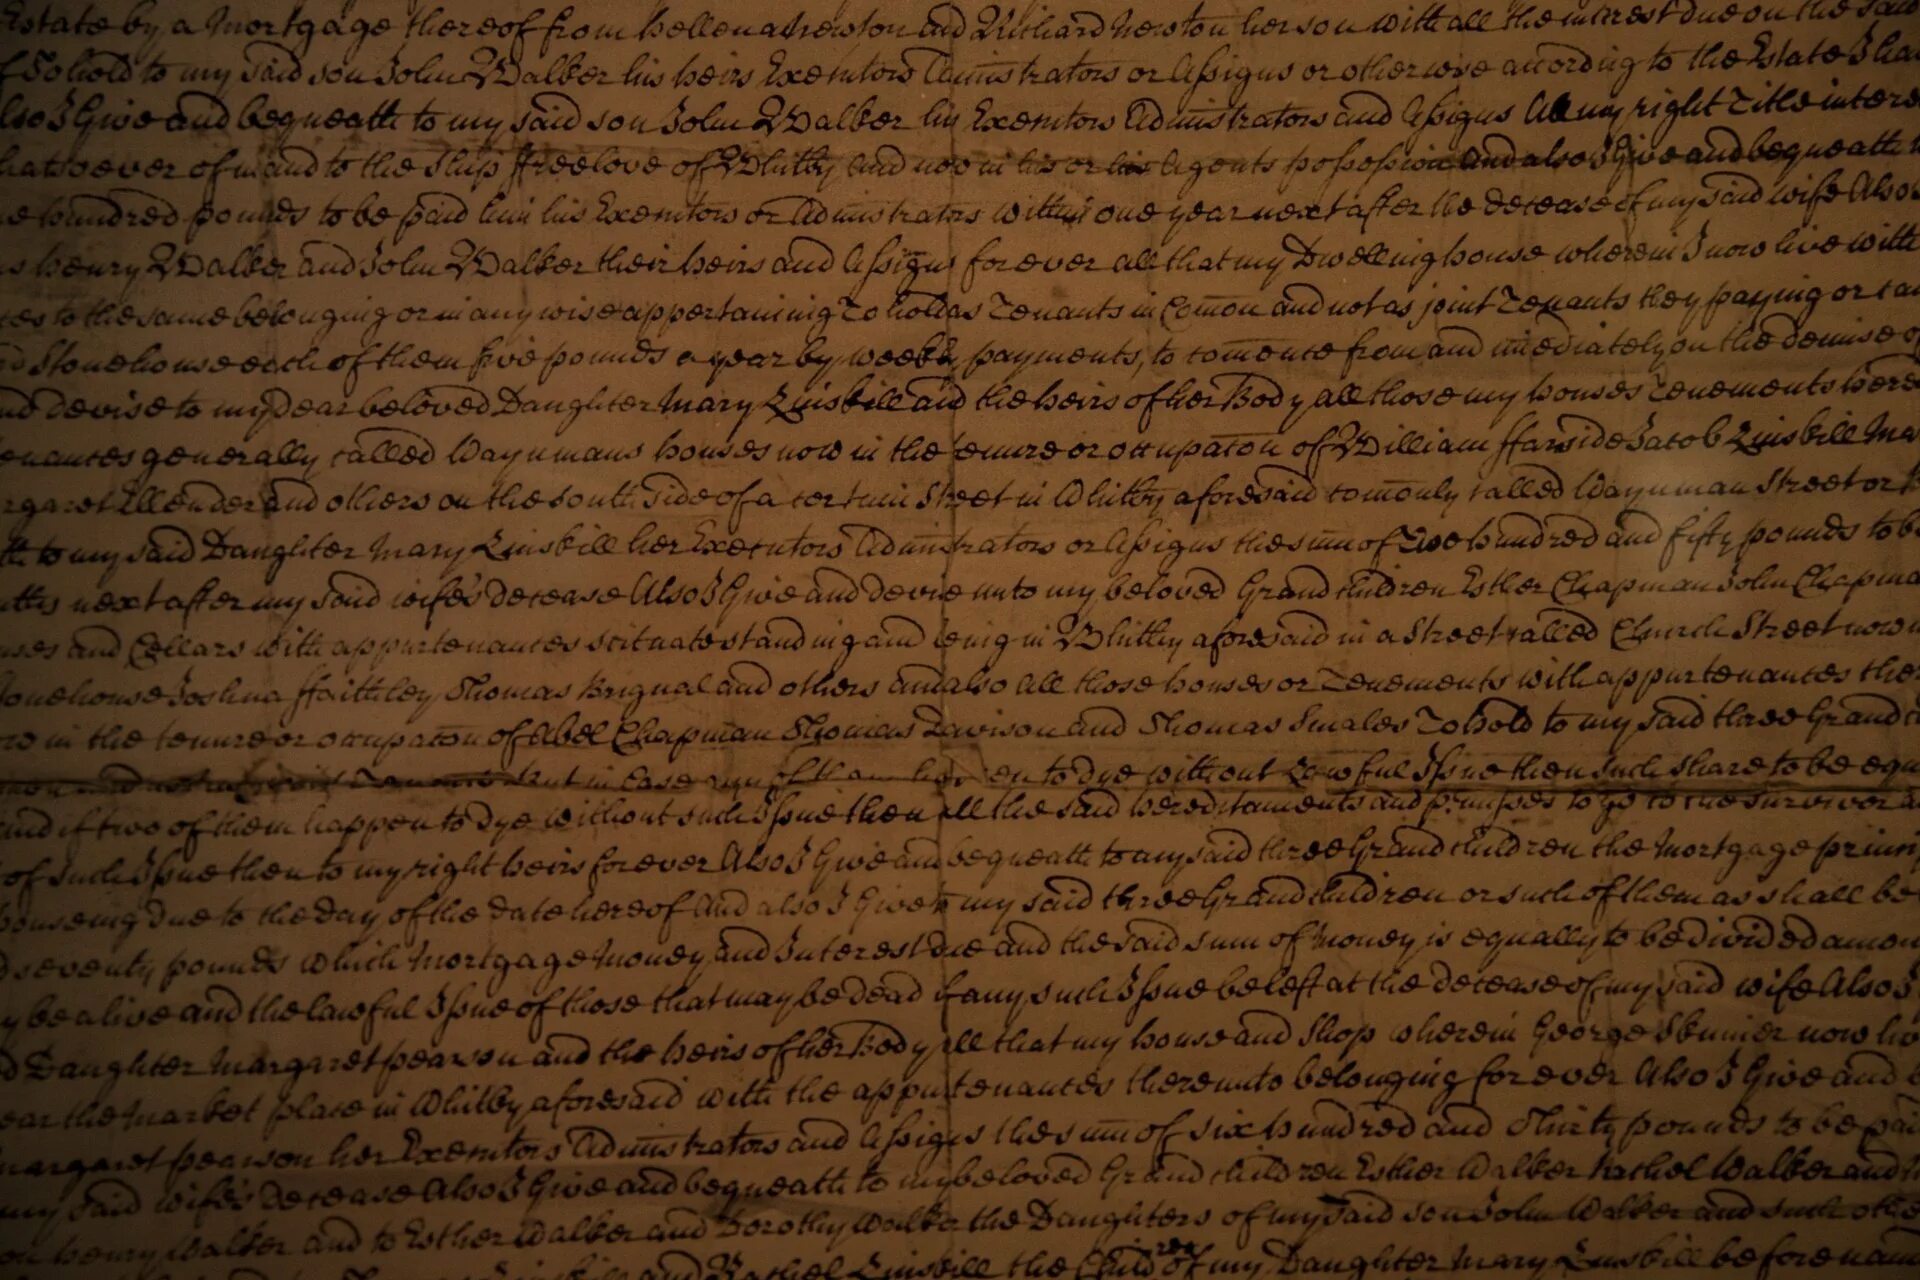 Estate by a Mortgage thereof from Hellena Newton and Richard Newton her son with all the interest due on the said
To hold to my said son John Walker his heirs Executors Administrators or Assigns or otherwise according to the Estate I ha
Also I Give and bequeath to my said son John Walker his Executors Administrators and Assigns All my right Title intere
hatsoever of in and to the Ship ffreelove of Whitby and now in his or his Agents possession and also I Give and bequeath
e hundred pounds to be paid him his Executors or Administrators within one year next after the decease of my said wife Also
s henry Walker and John Walker their heirs and Assigns for ever all that my Dwelling house wherein I now live with
ces to the same belonging or in any wise appertaining To hold as Tenants in Comon and not as joint Tenants they paying or
Stonehouse each of them five pounds a year by weekly payments, to comence from and imediately on the demise of
nd devise to my dear beloved Daughter Mary Linskill and the heirs of her Body all those my houses Tenements here
enances generally called Waynmans houses now in the tenure or occupaton of William ffarside Jacob Linskill Ma
rgaret Ellender and others on the south side of a certain Street in Whitby aforesaid comonly called Waynman Street or
th to my said Daughter Mary Linskill her Executors Administrators or Assigns the sum of Two hundred and fifty pounds to b
nths next after my said wife's decease Also I Give and devise unto my beloved Grand children Esther Chapman John Chapma
uses and Cellars with appurtenances scituate standing and being in Whitby aforesaid in a Street called Church Street now
tonehouse Joshua ffaithley Thomas Brignal and others and also all those houses or Tenements with appurtenances the
re in the tenure or occupaton of Abel Chapman Thomas Davison and Thomas Smales To hold to my said three Grand c
but in Case any of them happen to dye without Lawful Issue then such share to be equa
and if two of them happen to dye without such Issue then all the said hereditaments and premisses to go to the survivor a
of such Issue then to my right heirs for ever Also I Give and bequeath to my said three Grand children the Mortgage princip
houseing due to the day of the date hereof And also I Give to my said three Grand children or such of them as shall be
d seventy pounds which Mortgage Money and Interest due and the said sum of Money is equally to be divided amon
y be alive and the lawful Issue of those that may be dead if any such Issue be left at the decease of my said wife Also I
d Daughter Margaret pearson and the heirs of her Body all that my house and Shop wherein George Skinner now liv
ear the Market place in Whitby aforesaid with the appurtenances thereunto belonging for ever Also I Give and
Margaret pearson her Executors Administrators and Assigns the sum of six hundred and Thirty pounds to be paid
my said wife's Decease Also I Give and bequeath to my beloved Grand children Esther Walker Rachel Walker and
on henry Walker and to Esther Walker and Dorothy Walker the Daughters of my said son John Walker and such othe
and Rachel Linskill the Children of my Daughter Mary Linskill before nam